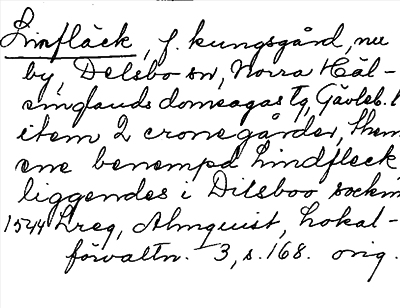 Linfläck, f. kungsgård, nu
by, Delsbo sn, Norra Häl-
singlands domsagas tg, Gävleb. l
item 2 cronegårder, them
ene benempd Lindfleck
liggendes i Dilsboo sockm
1544 Lreg, Almquist, Lokal-
förvaltn. 3, s. 168. orig.